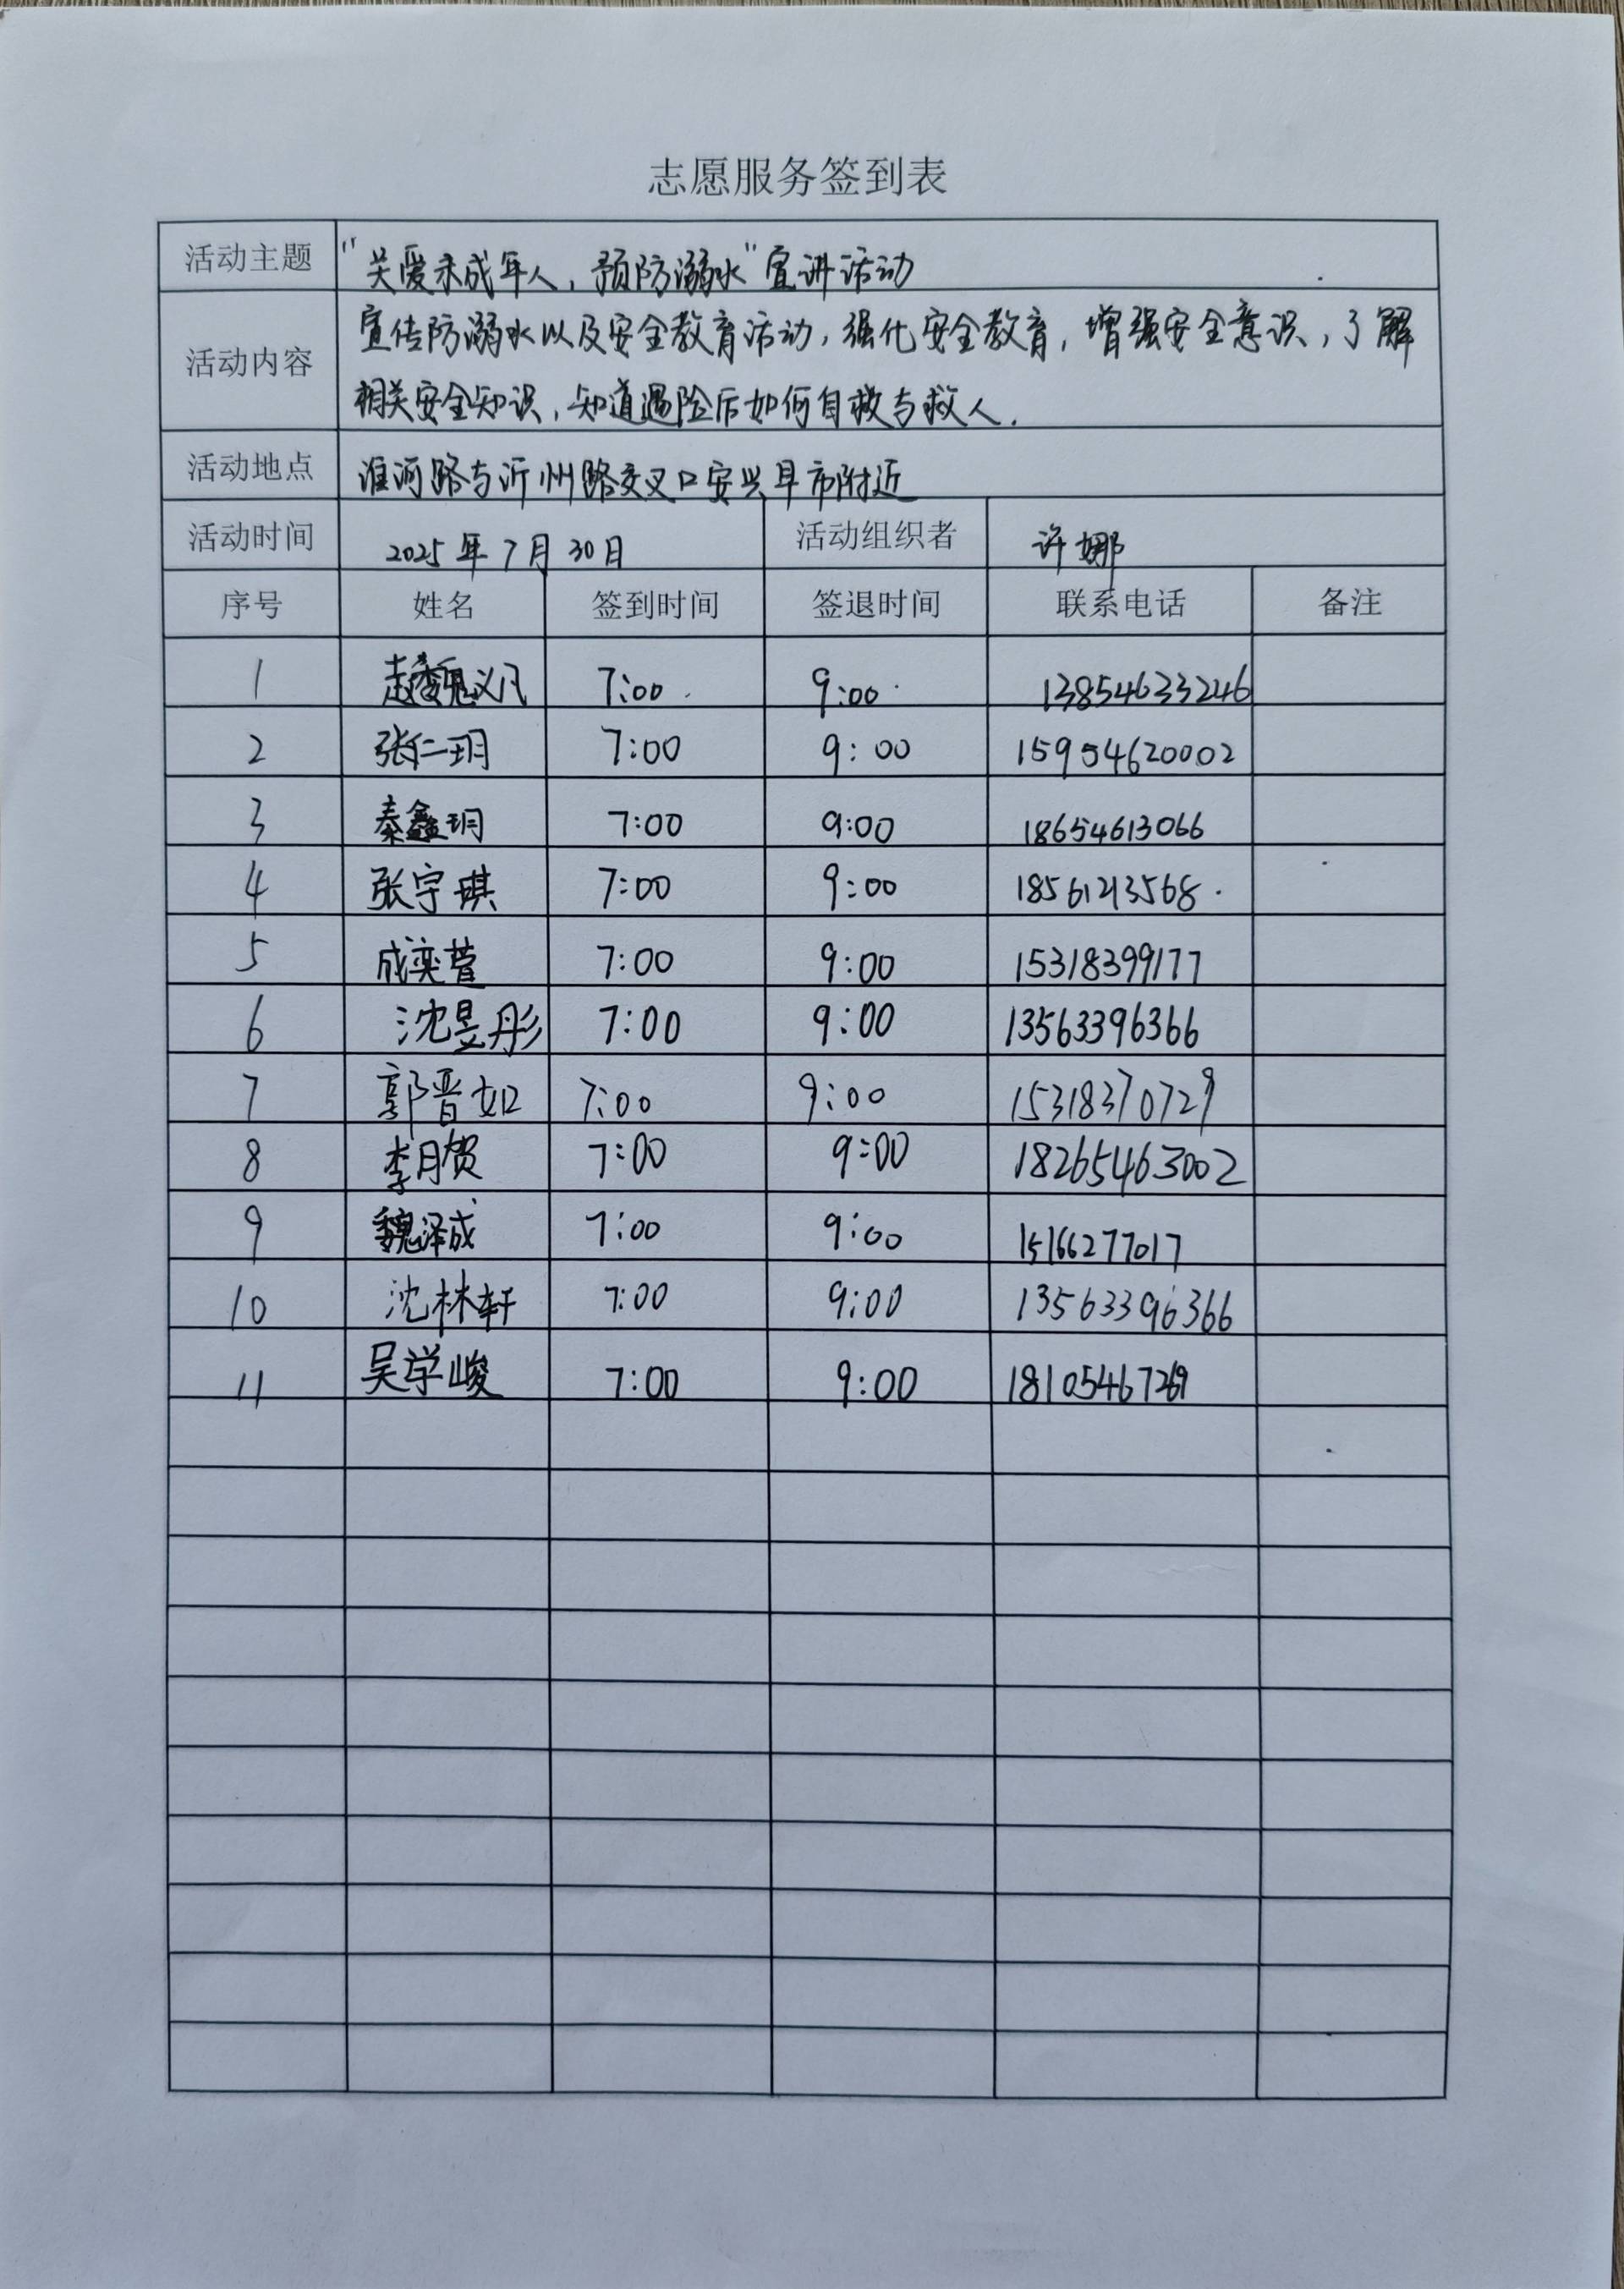 志愿服务签到表
活动主题 "关爱未成年人，预防溺水"宣讲活动
活动内容 宣传防溺水以及安全教育活动，强化安全教育，增强安全意识，了解
相关安全知识，知道遇险后如何自救与救人.
活动地点 淮河路与沂州路交叉口安兴早市附近
活动时间 2025年7月30日 活动组织者 许娜
序号 姓名 签到时间 签退时间 联系电话 备注
1 赵魏义凡 7:00 9:00 13854633246
2 张仁玥 7:00 9:00 15954620002
3 秦鑫玥 7:00 9:00 18654613066
4 张宇琪 7:00 9:00 18561213568
5 成奕萱 7:00 9:00 15318399177
6 沈昱彤 7:00 9:00 13563396366
7 郭晋如 7:00 9:00 15318370729
8 李月贺 7:00 9:00 18265463002
9 魏泽成 7:00 9:00 15166277017
10 沈林轩 7:00 9:00 13563396366
11 吴学峻 7:00 9:00 18105467269